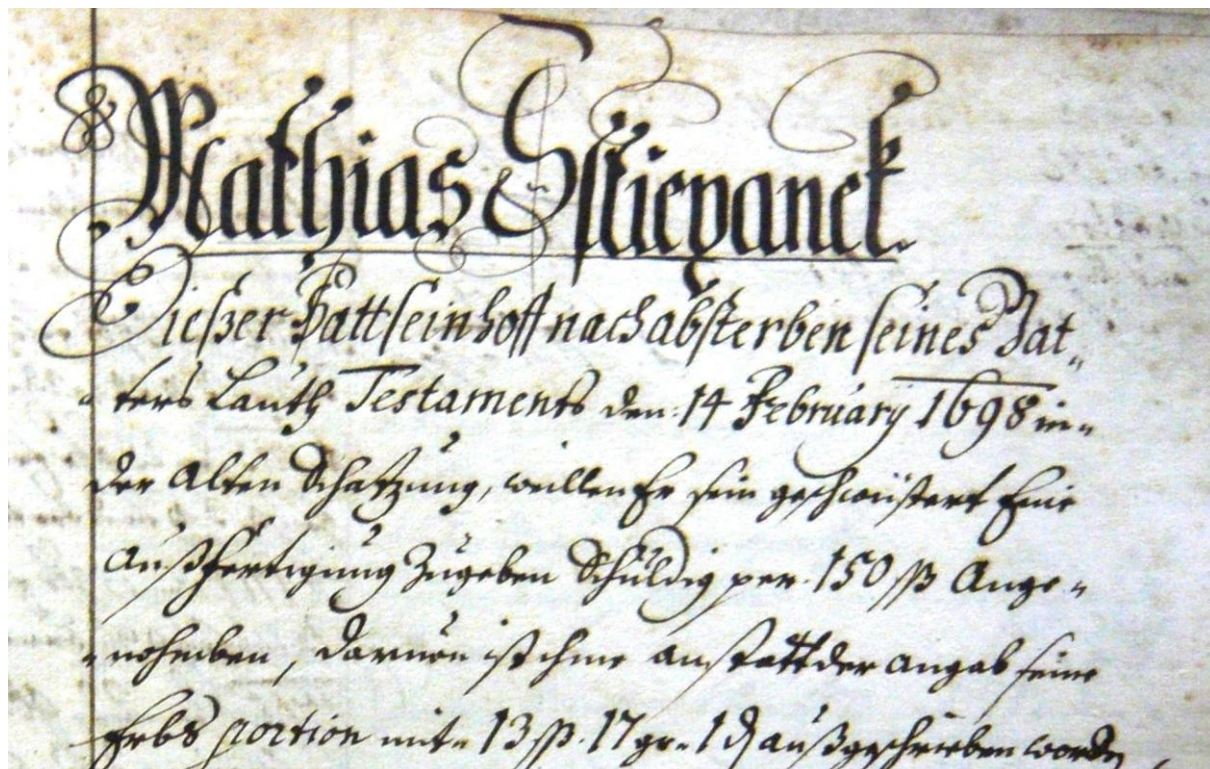 Mathias Sstiepanek.
Dießer Hatt seinhoff nach absterben seines Vat„
ters Lauth Testaments den: 14 February 1698 in„
der Alten Schatzung, weillen Er sein geschwüstert Eine
Außfertigung Zugeben Schuldig per. 150 ßß Ange„
nohmben, daruon ist ihme anstatt der angab seine
Erbs portion mit 13 ßß. 17 gr. 1 ₰ außgeschrieben worden,